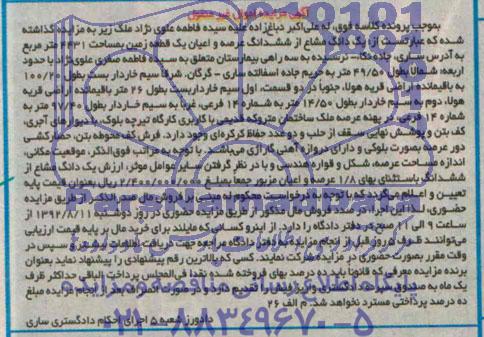 آگهی مزایده اموال غیر منقول
بموجب پرونده کلاسه فوق، له علی‌اکبر دباغ‌زاده علیه سیده فاطمه علوی نژاد ملک زیر به مزایده گذاشته
شده که عبارتست از: یک دانگ مشاع از ششدانگ عرصه و اعیان یک قطعه زمین بمساحت ۴۴۳۱ متر مربع
به آدرس ساری، جاده نکا- نرسیده به سه راهی بیمارستان متعلق به سیده فاطمه صغری علوی‌نژاد با حدود
اربعه: شمالا بطول ۴۹/۵۰ متر به حریم جاده آسفالته ساری - گرگان. شرقا سیم خاردار بست بطول ۱۰۰/۲۰
به باقیمانده اراضی قریه هولا، جنوبا در دو قسمت، اول سیم خاردار بست بطول ۲۶ متر باقیمانده اراضی قریه
هولا، دوم به سیم خاردار بطول ۱۴/۵۰ متر به شماره ۱۴ فرعی، غربا به سیم خاردار بطول ۹۷/۴۰ متر به
شماره ۱۴ فرعی، در پهنه عرصه ملک ساختمان متروکه قدیمی با کاربری کارگاه تیرچه بلوک، با دیوارهای آجری،
کف بتن و پوشش نهایی سقف از حلب و دو عدد حفاظ کرکره‌ای وجود دارد. فرش کف محوطه بتن، حصارکشی
دور عرصه بصورت بلوکی و دارای دروازه آهنی گاراژی می‌باشد. با توجه به مراتب فوق‌الذکر، موقعیت مکانی،
اندازه مساحت عرصه، شکل و قواره هندسی و با در نظر گرفتن سایر عوامل موثر، ارزش یک دانگ مشاع از
ششدانگ باستثنای بهای ۱/۸ عرصه و اعیان مزبور جمعا بمبلغ ۲/۴۰۰/۰۰۰/۰۰۰ ریال بعنوان قیمت پایه
تعیین و اعلام می‌گردد که با توجه به درخواست محکوم له مبنی بر فروش مال صدرالذکر از طریق مزایده
حضوری، لذا این اجرا، در صدد فروش مال مذکور از طریق مزایده حضوری در روز دوشنبه ۱۳۹۲/۸/۱۱ از
ساعت ۹ الی ۱۱ صبح در دفتر دادگاه را دارد. از اینرو کسانی که مایلند برای خرید مال بر پایه قیمت ارزیابی
می‌توانند ظرف ۵ روز قبل از انجام مزایده به دفتر دادگاه مراجعه جهت دریافت اطلاعات بیشتر و سپس در
وقت مقرر بصورت حضوری در مزایده شرکت نمایند. کسی که بالاترین رقم پیشنهادی را پیشنهاد نماید بعنوان
برنده مزایده معرفی که قانونا باید ده درصد بهای فروخته شده نقدا فی‌المجلس پرداخت الباقی حداکثر ظرف
یک ماه به صندوق سپرده دادگستری واریز و فیش آنرا تقدیم دارد. در صورت انصراف بعد از انجام مزایده مبلغ
ده درصد پرداختی مسترد نخواهد شد. م الف ۲۶
دادورز شعبه ۵ اجرای احکام دادگستری ساری
۰۲۱-۸۸۳۴۹۶۷۰-۵